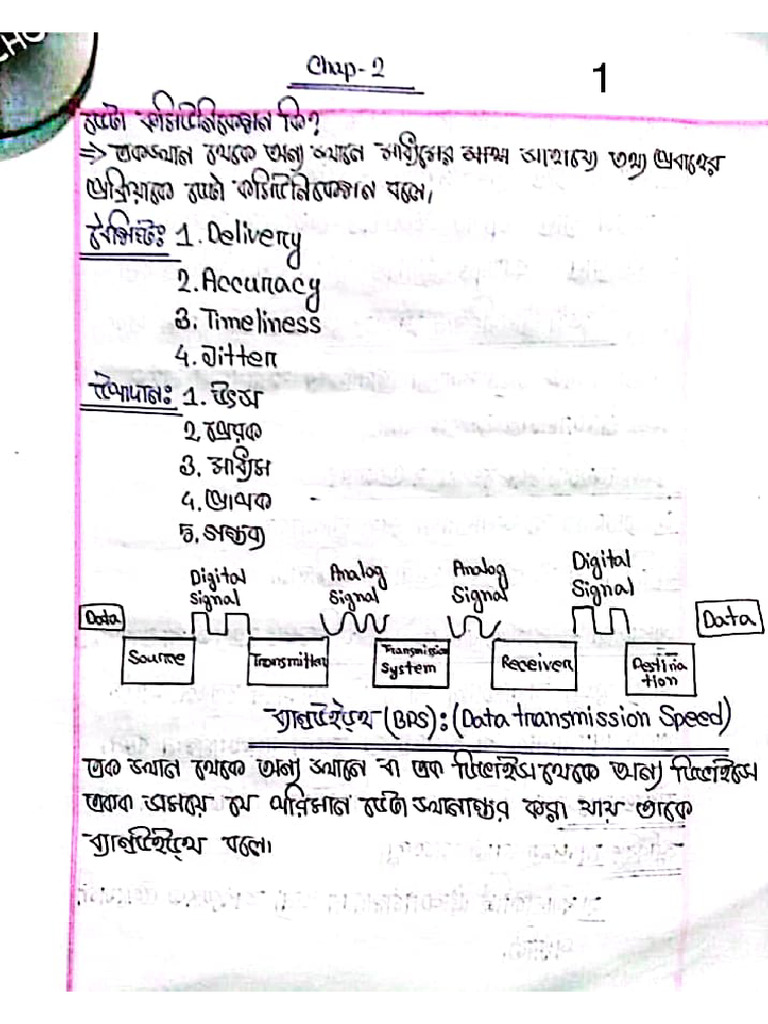 CHO
Chap-2
1
ডেটা কমিউনিকেশন কি?
⇒ একস্থান থেকে অন্য স্থানে মাধ্যমের সাহায্যে তথ্য প্রবাহের
প্রক্রিয়াকে ডেটা কমিউনিকেশন বলে।
বৈশিষ্ট্যঃ 1. Delivery
2. Accuracy
3. Timeliness
4. Jitter
উপাদানঃ 1. উৎস
2. প্রেরক
3. মাধ্যম
4. প্রাপক
5. গন্তব্য
Digital Signal Analog Signal Analog Signal Digital Signal
Data Data
Source Transmitter Transmission System Receiver Destination
ব্যান্ডউইথ (BPS): (Data transmission Speed)
এক স্থান থেকে অন্য স্থানে বা এক ডিভাইস থেকে অন্য ডিভাইসে
একক সময়ে যে পরিমান ডেটা স্থানান্তর করা যায় তাকে
ব্যান্ডউইথ বলে।